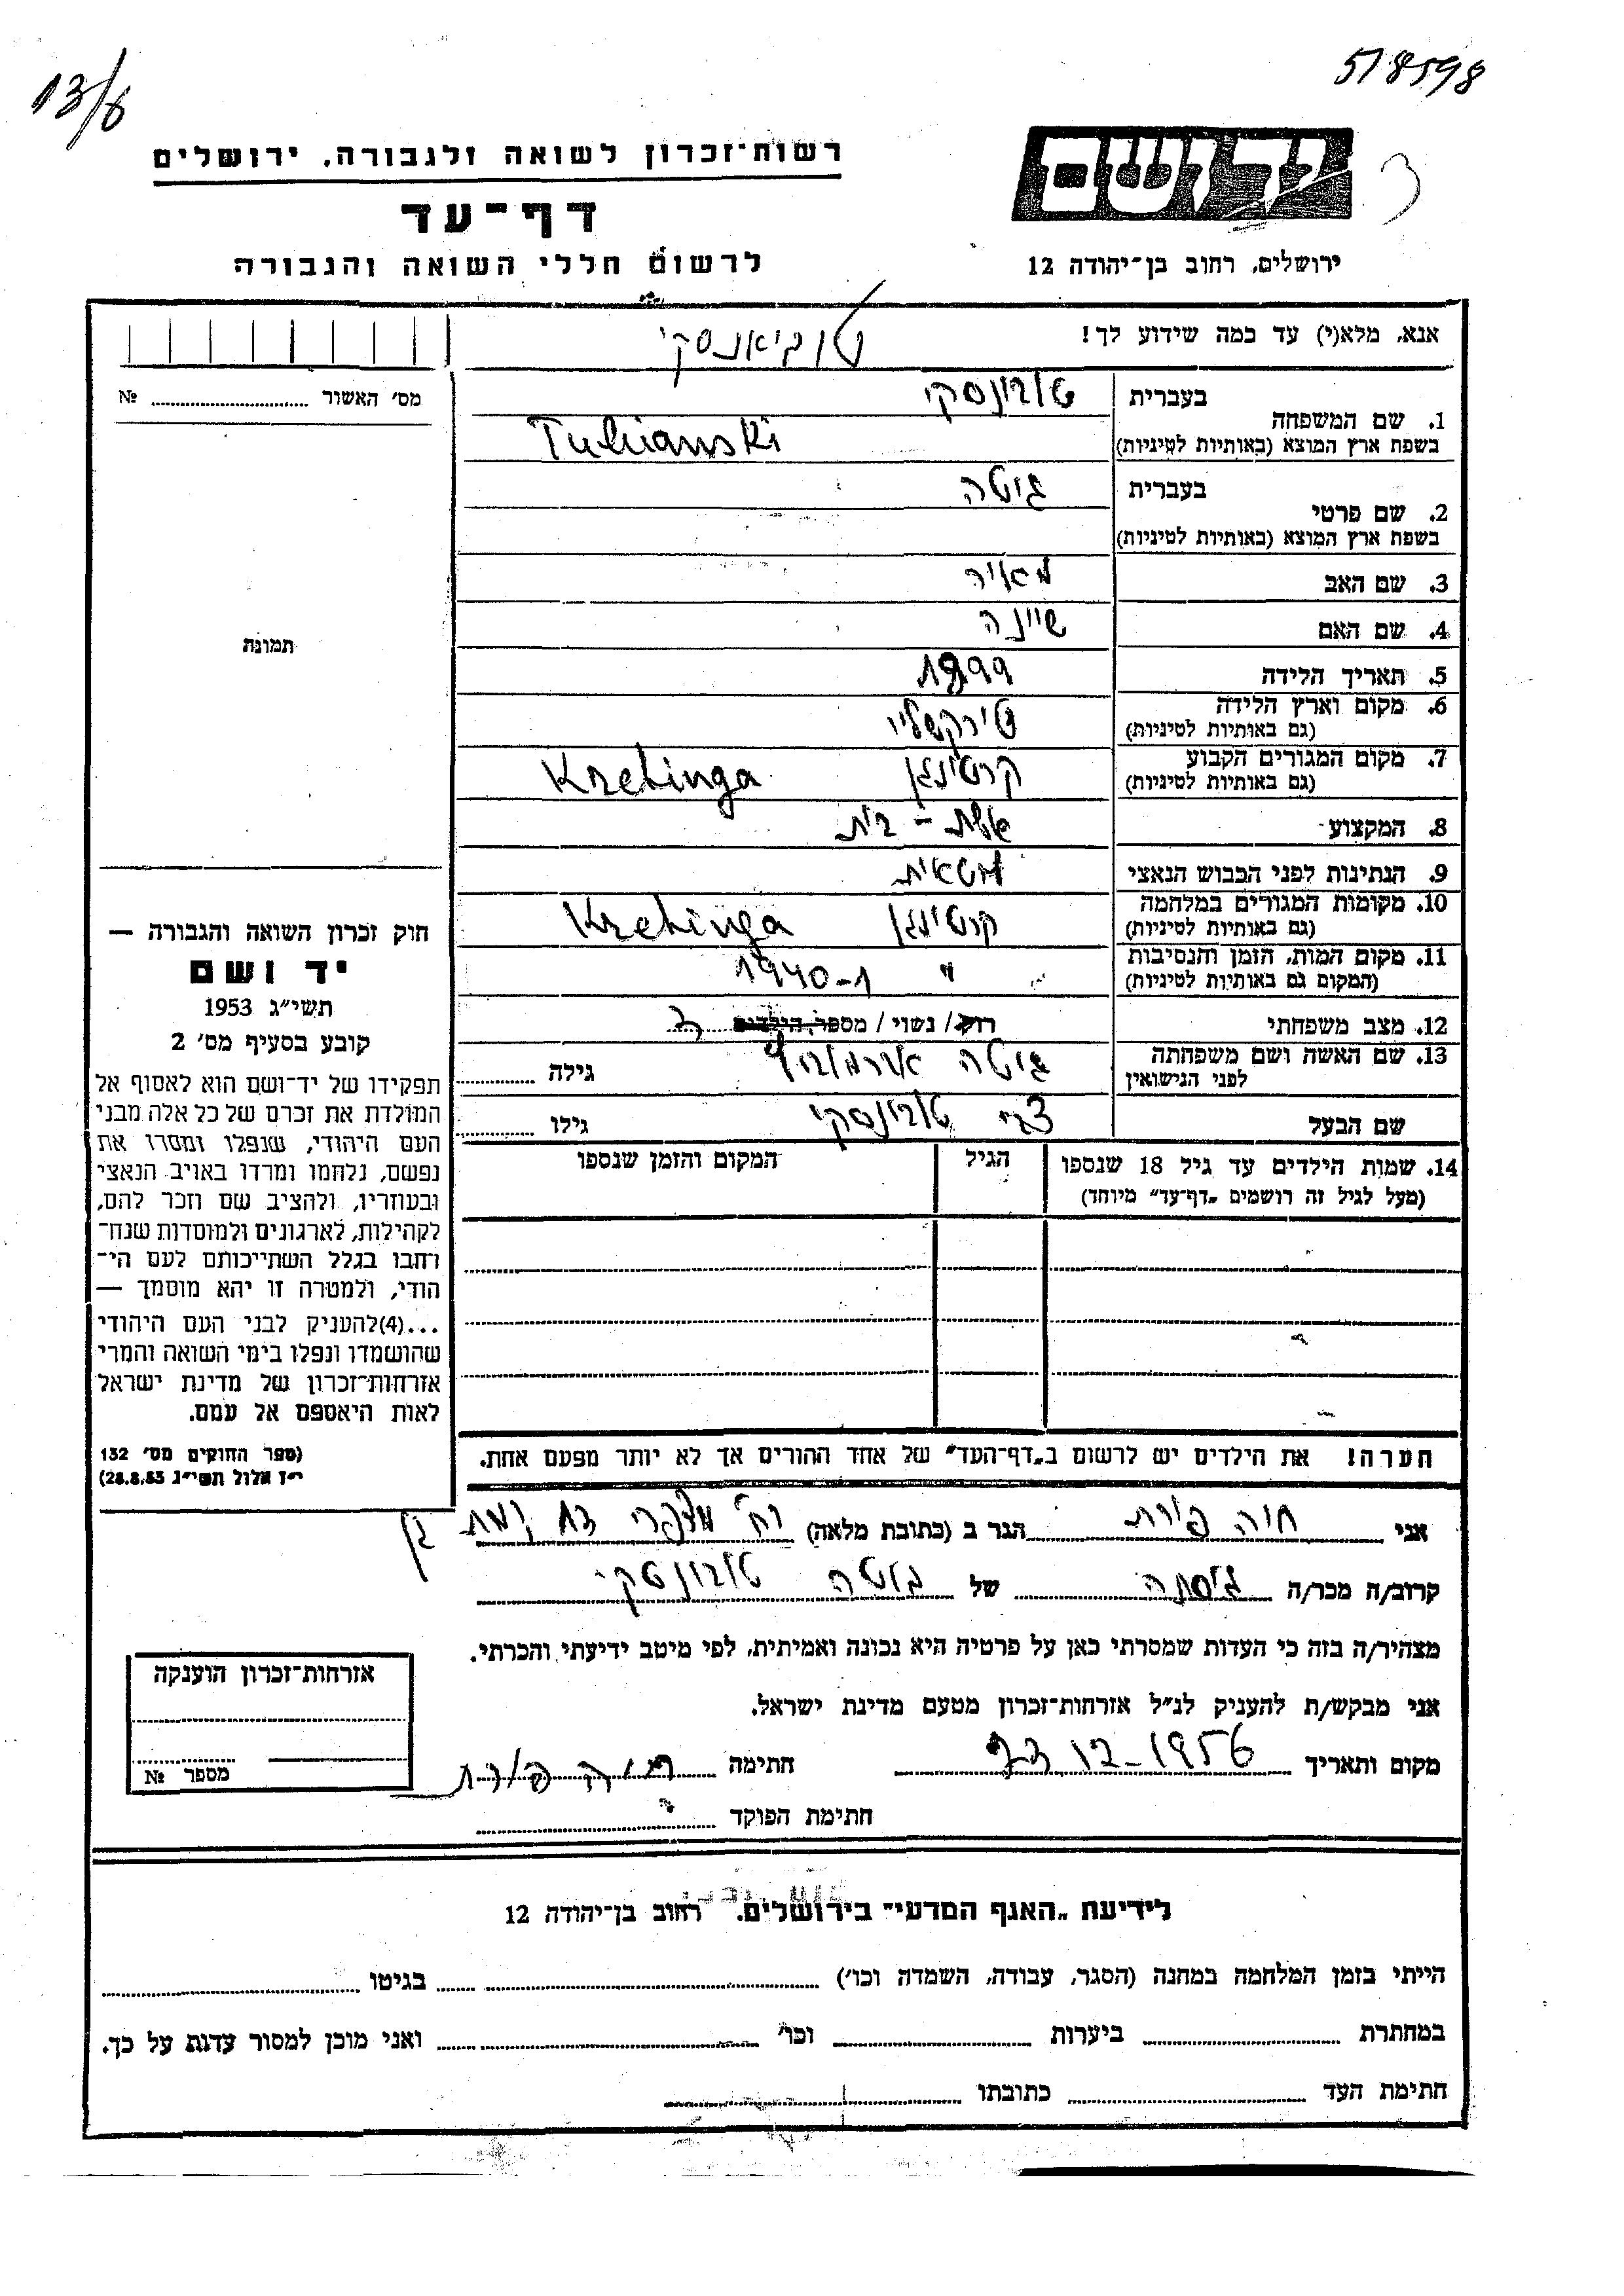 13/8
518598
יד ושם
רשות־זכרון לשואה ולגבורה, ירושלים
דף־עד
לרשום חללי השואה והגבורה
ירושלים, רחוב בן־יהודה 12
אנא, מלא(י) עד כמה שידוע לך!
טוביאנסקי
מס׳ האשור № 
1. שם המשפחה
בעברית טוביונסקי
בשפת ארץ המוצא (באותיות לטיניות) Tubianski
2. שם פרטי
בעברית גוטה
בשפת ארץ המוצא (באותיות לטיניות)
3. שם האב מאיר
4. שם האם שיינה
5. תאריך הלידה 1899
6. מקום וארץ הלידה
(גם באותיות לטיניות) טירקשליו
7. מקום המגורים הקבוע
(גם באותיות לטיניות) קרטינגן Kretinga
8. המקצוע אשת - בית
9. הנתינות לפני הכבוש הנאצי ליטאית
10. מקומות המגורים במלחמה
(גם באותיות לטיניות) קרטינגן Kretinga
11. מקום המות, הזמן והנסיבות
(המקום גם באותיות לטיניות) " 1940-1
12. מצב משפחתי רווק / נשוי / מספר הילדים
13. שם האשה ושם משפחתה
לפני הנישואין גוטה גילה
שם הבעל צבי טוביונסקי גילו
14. שמות הילדים עד גיל 18 שנספו
(מעל לגיל זה רושמים „דף־עד” מיוחד)
הגיל
המקום והזמן שנספו
הערה! את הילדים יש לרשום ב„דף־העד” של אחד ההורים אך לא יותר מפעם אחת.
תמונה
חוק זכרון השואה והגבורה —
יד ושם
תשי״ג 1953
קובע בסעיף מס׳ 2
תפקידו של יד־ושם הוא לאסוף אל
המולדת את זכרם של כל אלה מבני
העם היהודי, שנפלו ומסרו את
נפשם, נלחמו ומרדו באויב הנאצי
ובעוזריו, ולהציב שם וזכר להם,
לקהילות, לארגונים ולמוסדות שנח־
רחבו בגלל השתייכותם לעם הי־
הודי, ולמטרה זו יהא מוסמך —
...(4)להעניק לבני העם היהודי
שהושמדו ונפלו בימי השואה והמרי
אזרחות־זכרון של מדינת ישראל
לאות היאספם אל עמם.
(ספר החוקים מס׳ 132
י״ז אלול תשי״ג 28.8.53)
אני חוה פורת הגר ב (כתובת מלאה) רח׳ רמת גן
קרוב/ה מכר/ה גיסתה של גוטה טוביונסקי
מצהיר/ה בזה כי העדות שמסרתי כאן על פרטיה היא נכונה ואמיתית, לפי מיטב ידיעתי והכרתי.
אני מבקש/ת להעניק לנ״ל אזרחות־זכרון מטעם מדינת ישראל.
מקום ותאריך 12-1956 חתימה חוה פורת
חתימת הפוקד
אזרחות־זכרון הוענקה
מספר №
לידיעת „האגף המדעי” בירושלים, רחוב בן־יהודה 12
הייתי בזמן המלחמה במחנה (הסגר, עבודה, השמדה וכו׳) בגיטו
במחתרת ביערות וכו׳ ואני מוכן למסור עדות על כך.
חתימת העד כתובתו